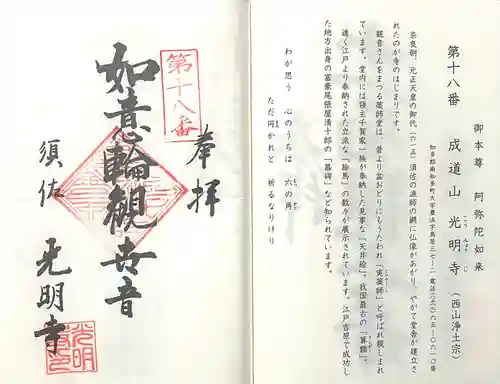 御本尊 阿弥陀如来
第十八番 成道山 光明寺（西山浄土宗）
こうみょうじ
知多郡南知多町大字豊浜字鳥居三七ー二 電話（〇五六九）六五ー〇六一〇番
奈良朝、元正天皇の御代（七一五）須佐の漁師の網に仏像があがり、やがて堂舎が建立さ
れたのが寺のはじまりです。
観音さんをまつる薬師堂は、昔より盆おどりにもうたわれ「実薬師」と呼ばれ親しまれ
ています。堂内には領主千賀家一族が奉納した見事な「天井絵」、我国最古の「算額」、
遠く江戸より奉納された立派な「絵馬」の数々が展示されています。江戸吉原で成功し
た地方出身の富豪尾張屋清十郎の「墓碑」など知られています。
わが思う 心のうちは 六の角
ただ円かれと 祈るなりけり
奉拝
第十八番
如意輪観世音
須佐 光明寺